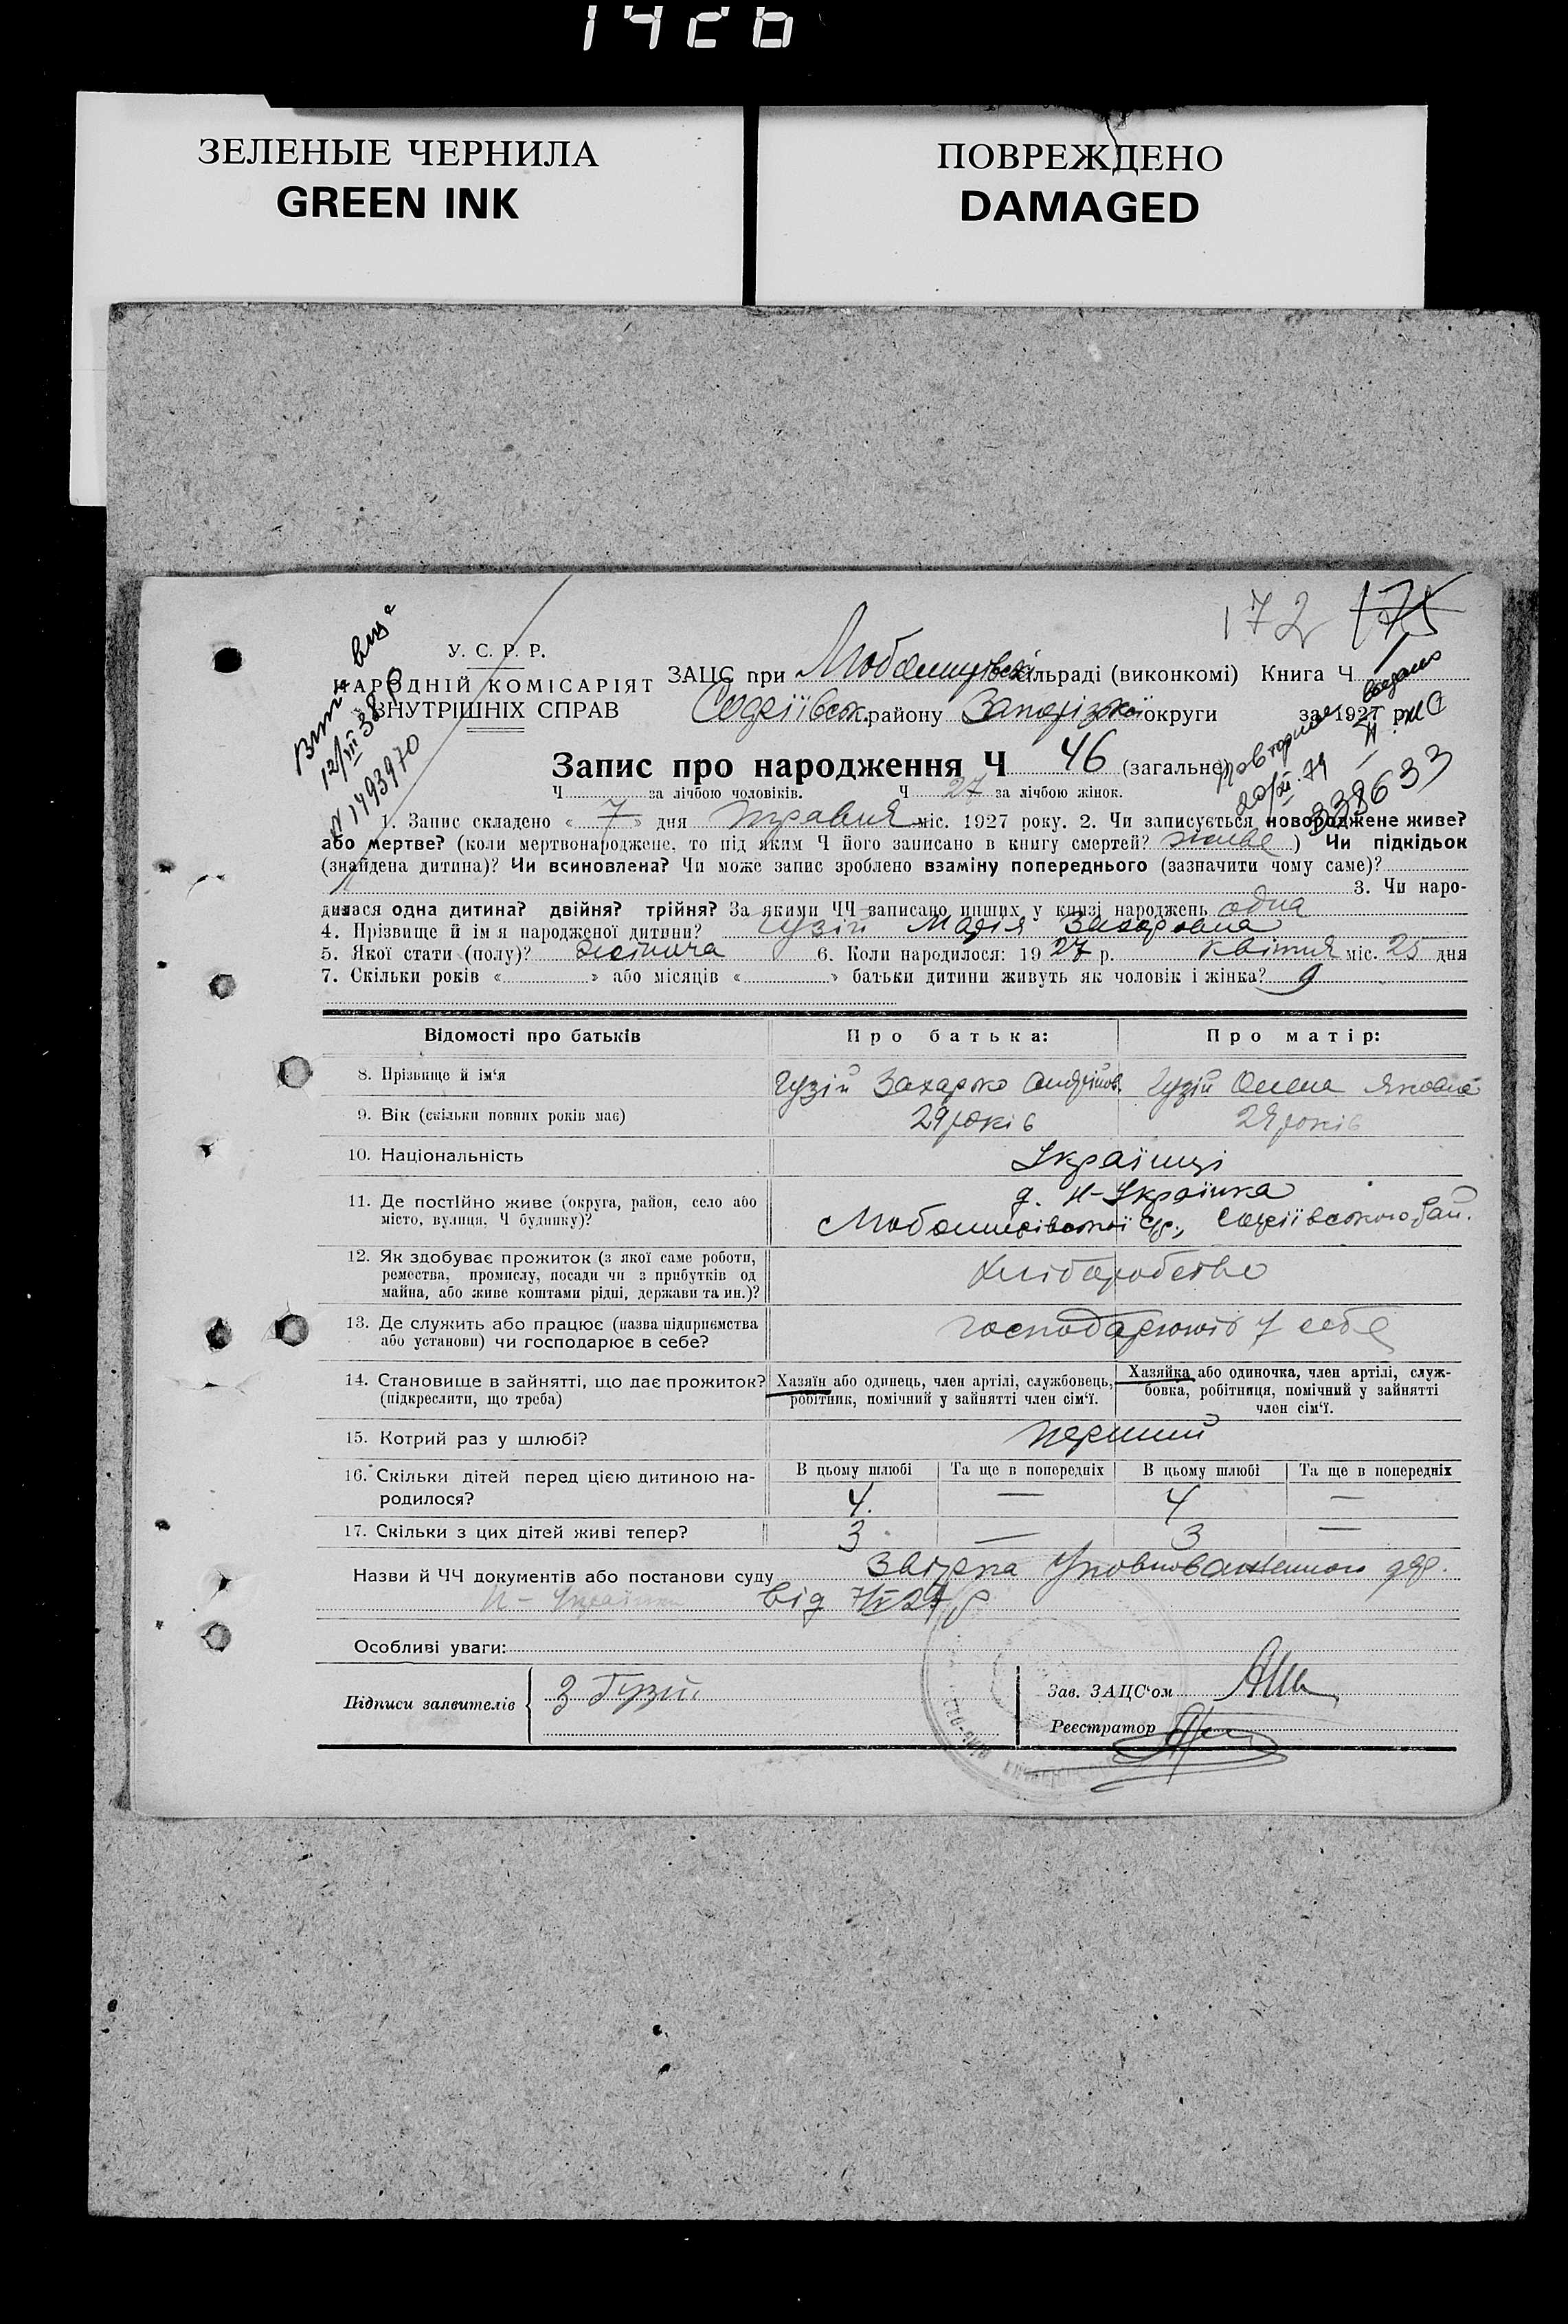 1426
ЗЕЛЕНЫЕ ЧЕРНИЛА
GREEN INK
ПОВРЕЖДЕНО
DAMAGED
172 175
У. С. Р. Р.
НАРОДНІЙ КОМІСАРІЯТ
ВНУТРІШНІХ СПРАВ
12/III 38 р
N 1493970
ЗАЦС при Любомирівській сільраді (виконкомі) Книга Ч
Софіївськ. району Запорізької округи за 1927 р.
повторне видано
20/XI.74
338633
Запис про народження Ч 46 (загальне)
Ч за лічбою чоловіків. Ч 27 за лічбою жінок.
1. Запис складено « 7 » дня травня міс. 1927 року. 2. Чи записується новороджене живе?
або мертве? (коли мертвонароджене, то під яким Ч його записано в книгу смертей? живе ) Чи підкідьок
(знайдена дитина)? Чи всиновлена? Чи може запис зроблено взаміну попереднього (зазначити чому саме)?
3. Чи наро-
дилася одна дитина? двійня? трійня? За якими ЧЧ записано инших у книзі народжень одна
4. Прізвище й імя народженої дитини? Гузій Марія Захаровна
5. Якої стати (полу)? жіноча 6. Коли народилося: 1927 р. квітня міс. 25 дня
7. Скільки років « » або місяців « » батьки дитини живуть як чоловік і жінка? 9
Відомості про батьків Про батька: Про матір:
8. Прізвище й ім‘я Гузій Захарко Андрійов. Гузій Олена Яковна
9. Вік (скільки повних років має) 29 років 29 років
10. Національність Українці
11. Де постійно живе (округа, район, село або
місто, вулиця, Ч будинку)?
д. Н-Українка
Любомирівської с/р., Софіївського рай.
12. Як здобуває прожиток (з якої саме роботи,
ремества, промислу, посади чи з прибутків од
майна, або живе коштами рідні, держави та ин.)?
Хліборобство
13. Де служить або працює (назва підприємства
або установи) чи господарює в себе?
господарюють у себе
14. Становище в зайнятті, що дає прожиток?
(підкреслити, що треба)
Хазяїн або одинець, член артілі, службовець,
робітник, помічний у зайнятті член сім‘ї.
Хазяйка або одиночка, член артілі, служ-
бовка, робітниця, помічний у зайнятті
член сім‘ї.
15. Котрий раз у шлюбі? перший
16. Скільки дітей перед цією дитиною на-
родилося?
В цьому шлюбі Та ще в попередніх В цьому шлюбі Та ще в попередніх
4. — 4 —
17. Скільки з цих дітей живі тепер? 3 — 3 —
Назви й ЧЧ документів або постанови суду Звірка Уповноваженного
Н - Українки від 7/V 27 р
Особливі уваги:
Підписи заявителів З Гузій
Зав. ЗАЦС‘ом
Реєстратор